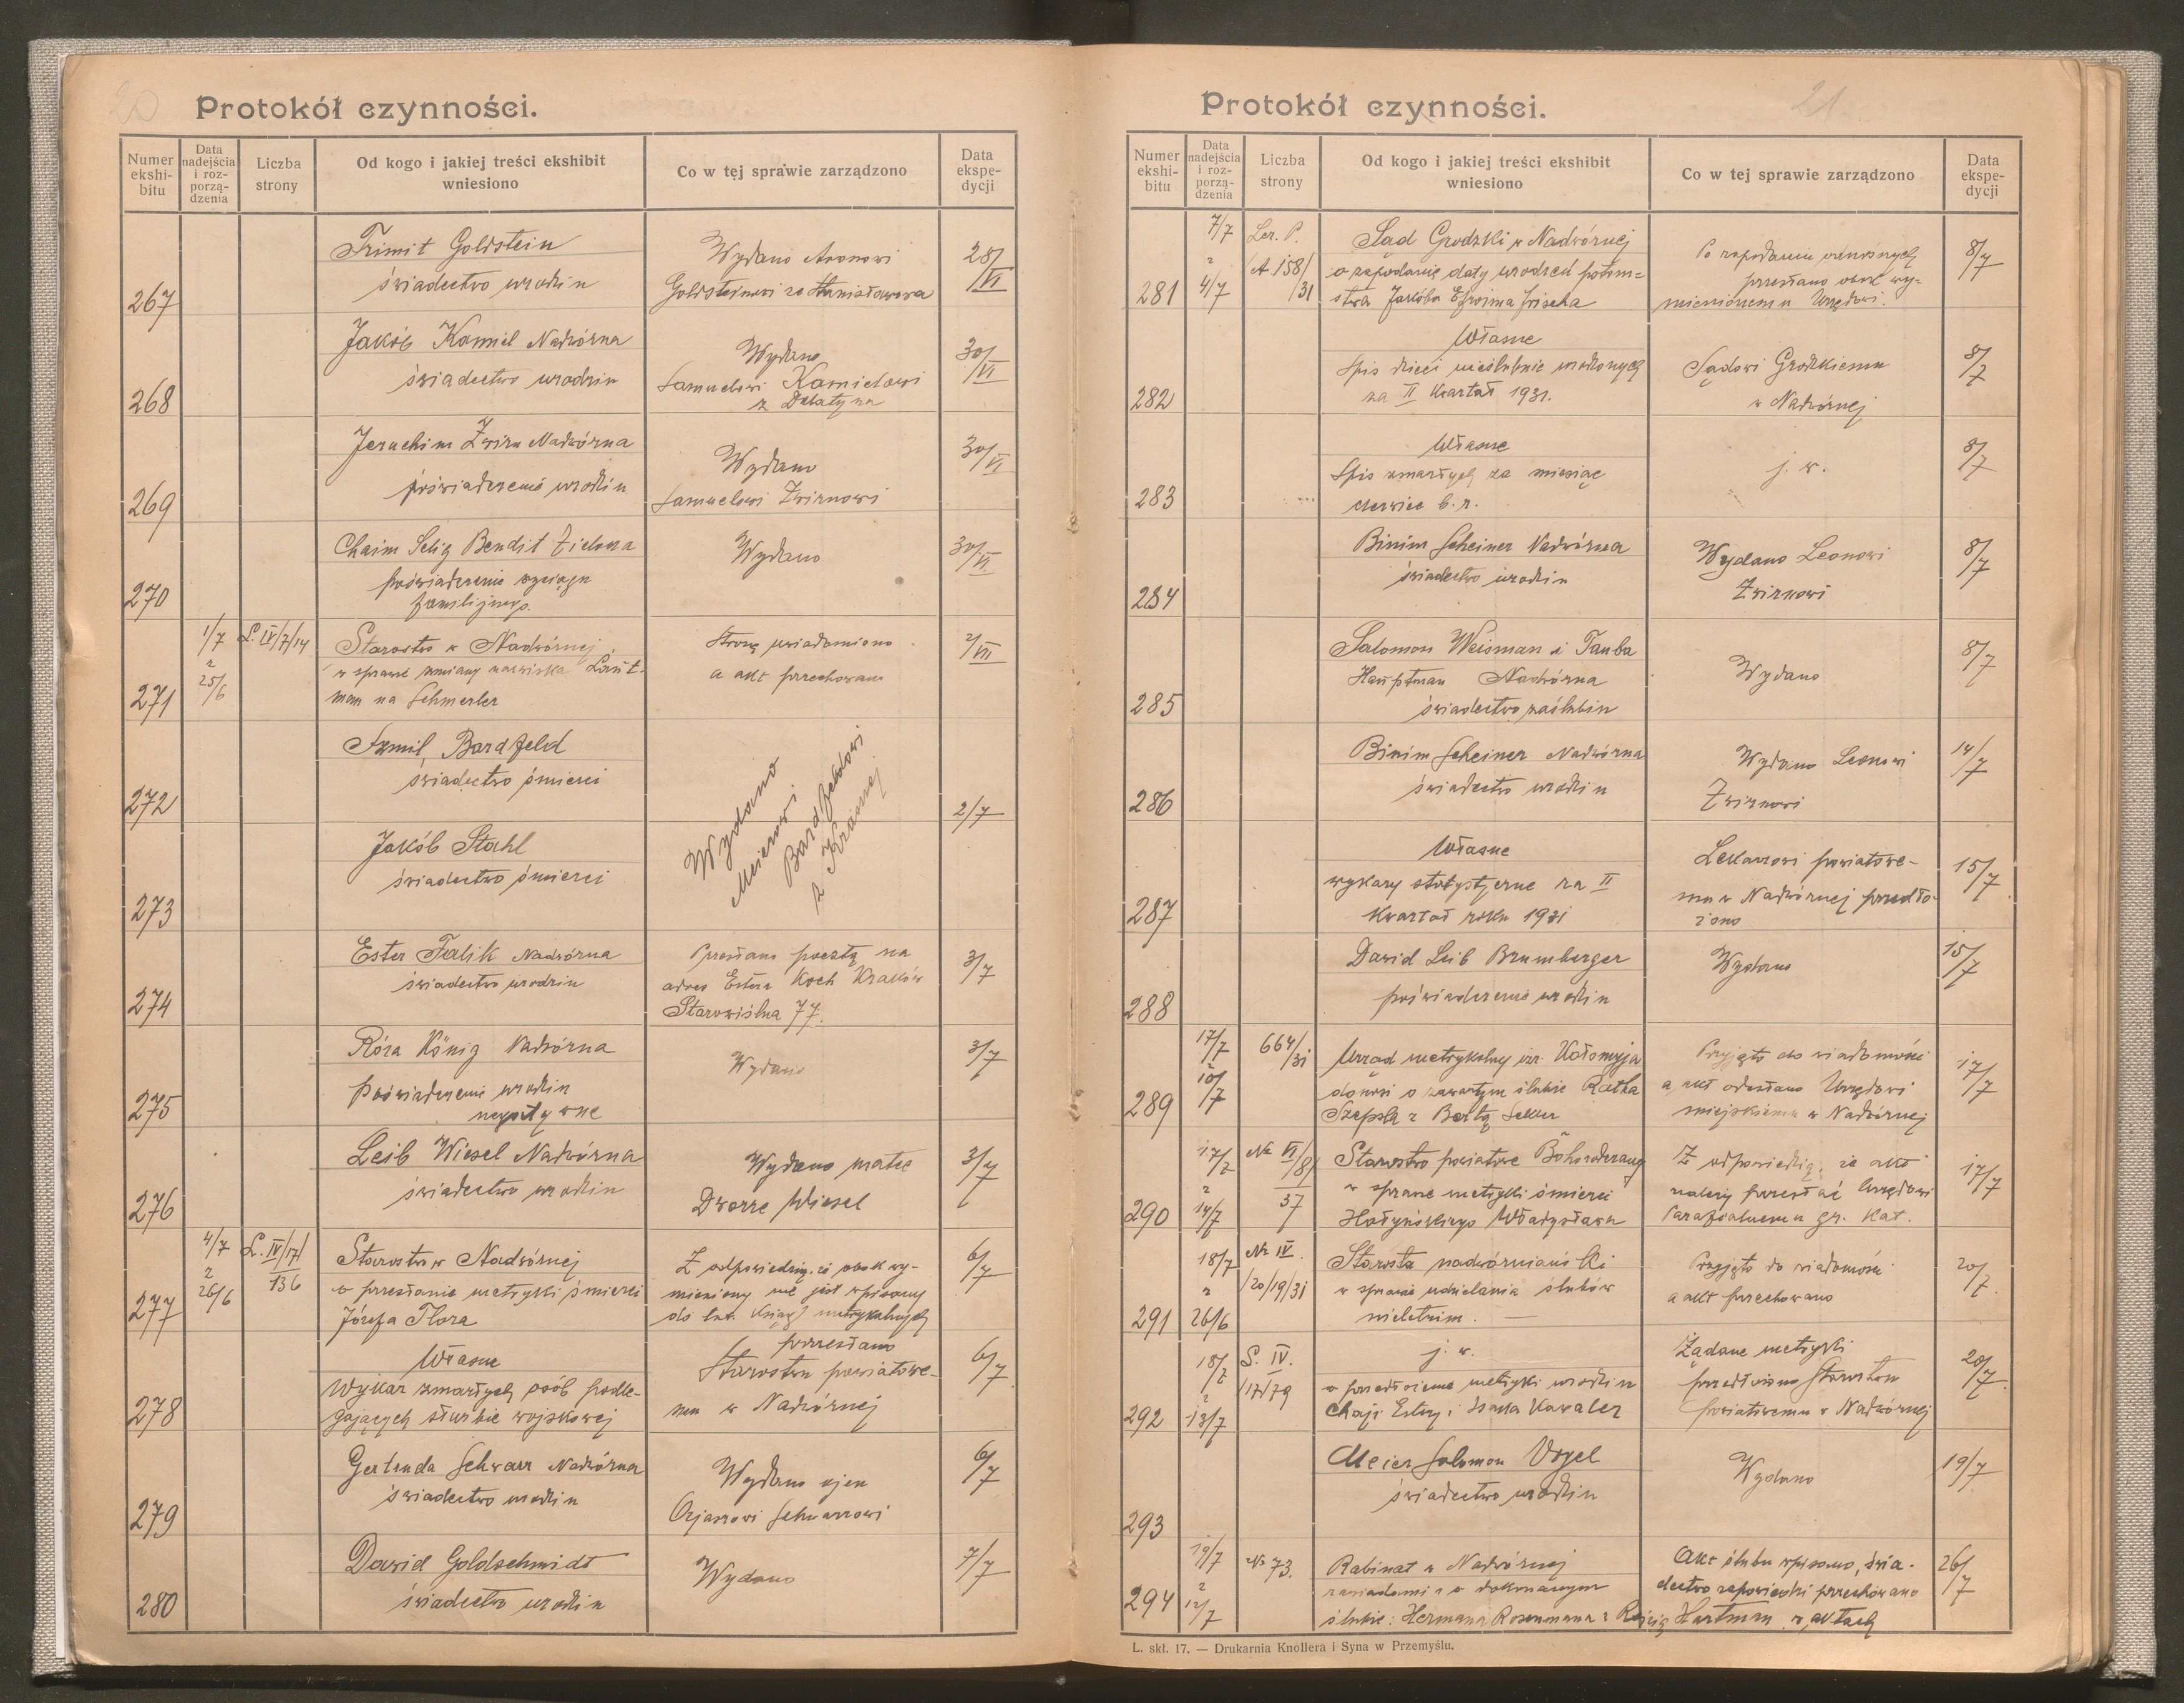 20
Protokół czynności.
Numer ekshi-bitu
Data nadejścia i roz-porzą-dzenia
Liczba strony
Od kogo i jakiej treści ekshibit wniesiono
Co w tej sprawie zarządzono
Data ekspe-dycji
267
Frimit Goldstein
świadectwo urodzin
Wydano Aronowi
Goldsteinowi ze Stanisławowa
28/VI
268
Jakób Kamiel Nadwórna
świadectwo urodzin
Wydano
Samuelowi Kamielowi
z Delatyna
30/VI
269
Jeruchim Zwirn Nadwórna
poświadczenie urodzin
Wydano
Samuelowi Zwirnowi
30/VI
270
Chaim Selig Bendit Zielona
poświadczenie wyciągu
familijnego.
Wydano
30/VI
271
1/7
z
25/6
L. IV/7/14
Starostwo w Nadwórnej
w sprawie zmiany nazwiska Laut-
man na Schmerler
Stronę uwiadomiono
a akt przechowano
2/VII
272
Szmil Bardfeld
świadectwo śmierci
Wydano
Meierowi
Bardfeldowi
z Krasnej
2/7
273
Jakób Stahl
świadectwo śmierci
274
Ester Falik Nadwórna
świadectwo urodzin
Przesłano pocztą na
adres Estera Koch Kraków
Starowiślna 77.
3/7
275
Róza König Nadwórna
Poświadczenie urodzin
negatywne
Wydano
3/7
276
Leib Wiesel Nadwórna
świadectwo urodzin
Wydano matce
Dworze Wiesel
3/7
277
4/7
z
26/6
L. IV/17/
136
Starostwo w Nadwórnej
o przesłanie metryki śmierci
Józefa Flora
Z odpowiedzią, że obok wy-
mieniony nie jest wpisany
do tut. Ksiąg metrykalnych
6/7
278
Własne
Wykaz zmarłych osób podle-
gających służbie wojskowej
przesłano
Starostwu powiatowe-
mu w Nadwórnej
6/7
279
Gertruda Schwarz Nadwórna
świadectwo urodzin
Wydano ojcu
Ozjaszowi Schwarzowi
6/7
280
Dawid Goldschmidt
świadectwo urodzin
Wydano
7/7
21
Protokół czynności.
Numer ekshi-bitu
Data nadejścia i roz-porzą-dzenia
Liczba strony
Od kogo i jakiej treści ekshibit wniesiono
Co w tej sprawie zarządzono
Data ekspe-dycji
281
7/7
z
4/7
Lcz. P.
A 158/
/31
Sąd Grodzki w Nadwórnej
o zapodanie daty urodzeń potom-
stwa Jakóba Efroima Frischa
Po zapodaniu odnośnych
przesłano obok wy-
mienionemu Urzędowi.
8/7
282
Własne
Spis dzieci nieślubnie urodzonych
za II Kwartał 1931.
Sądowi Grodzkiemu
w Nadwórnej
8/7
283
Własne
Spis zmarłych za miesiąc
czerwiec b. r.
j. w.
8/7
284
Binim Scheiner Nadwórna
świadectwo urodzin
Wydano Leonowi
Zwirnowi
8/7
285
Salomon Weisman i Tauba
Hauptman Nadwórna
świadectwo zaślubin
Wydano
8/7
286
Binim Scheiner Nadwórna
świadectwo urodzin
Wydano Leonowi
Zwirnowi
14/7
287
Własne
wykazy statystyczne za II
Kwartał roku 1931
Lekarzowi powiatowe-
mu w Nadwórnej przedło-
żono
15/7
288
Dawid Leib Brumberger
poświadczenie urodzin
Wydano
15/7
289
17/7
z
10/7
664/31
Urząd metrykalny izr. Kołomyja
donosi o zawartym ślubie Ratha
Szepsla z Bertą Seller
Przyjęto do wiadomości
a akt odesłano Urzędowi
miejskiemu w Nadwórnej
17/7
290
17/7
z
14/7
Nr VI/8/
37
Starostwo powiatowe Bohorodczany
w sprawie metryki śmierci
Hołyńskiego Władysława
Z odpowiedzią, że akt
należy przesłać Urzędowi
Parafialnemu gr. kat.
17/7
291
18/7
z
26/6
Nr IV.
/20/19/31
Starosta nadwórniański
w sprawie udzielania ślubów
nieletnim. —
Przyjęto do wiadomości
a akt przechowano
20/7
292
18/7
z
13/7
L. IV.
/17/79
j. w.
o przedłożenie metryki urodzin
Chaji Estery i Izaka Kawaler
Żądane metryki
przedłożono Starostwu
powiatowemu w Nadwórnej
20/7
293
Meier Salomon Vogel
świadectwo urodzin
Wydano
19/7
294
19/7
z
12/7
No 73.
Rabinat w Nadwórnej
zawiadomił o dokonanym
ślubie: Hermana Rosenmana z Rojzią Hartman
Akt ślubu wpisano, świa-
dectwo zapowiedzi przechowano
w aktach
26/7
L. skł. 17. — Drukarnia Knollera i Syna w Przemyślu.